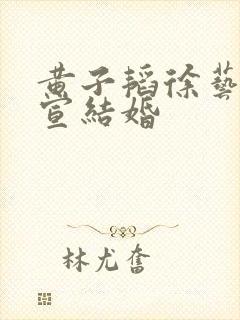 黄子韬徐藝
宣結婚
林尤奮